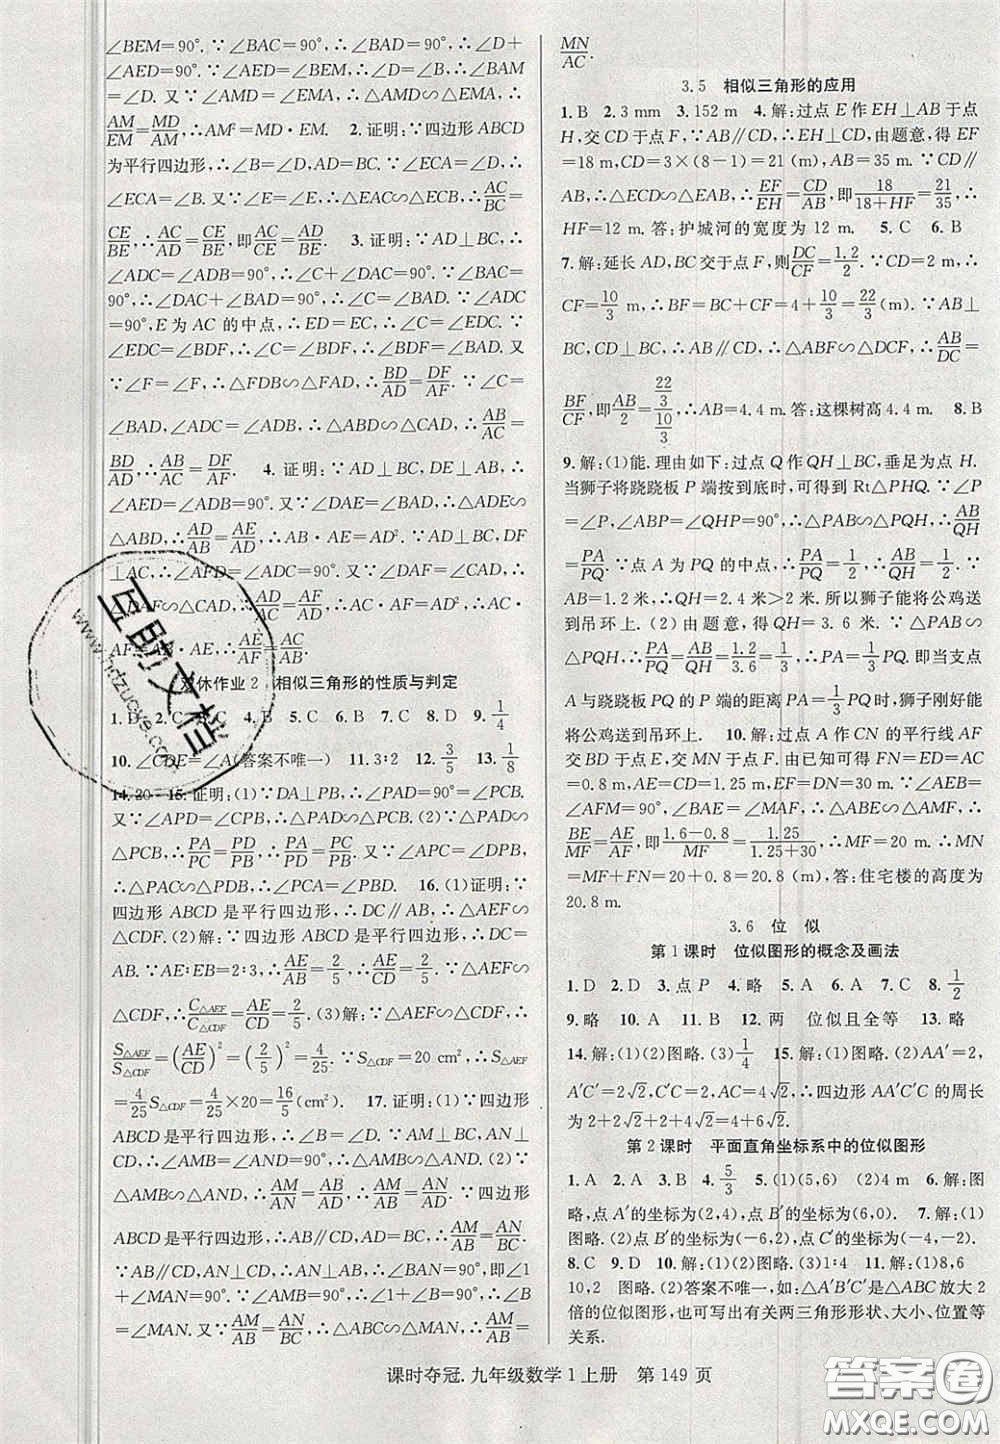 ∠BEM=90°. ∵∠BAC=90°, ∴∠BAD=90°, ∴∠D+
∠BAD=90°, ∴∠BEM=∠BAD=90°, ∴∠D+∠BAM
=∠D. 又∵∠AMD=∠AMD, ∴△AMD∽△EMA, ∴
AM/EM=MD/AM, ∴AM²=MD·EM. 2. 证明:∵四边形 ABCD
为平行四边形, ∴∠B=∠D, AD=BC. ∵∠ECA=∠D,
∴∠ECA=∠B. 又∵∠E=∠E, ∴△ECA∽△ECB, ∴AC/BC=
CE/BE, ∴AC/AD=CE/BE, 即AC/AD=CE/BE. 3. 证明:∵AD⊥BC, ∴
∠ADC=∠ADB=90°, ∴∠C+∠DAC=90°. ∵∠BAC=
90°, ∴∠BAD+∠DAC=90°, ∴∠C=∠BAD. ∵∠ADC
=90°, E 为 AC 的中点, ∴ED=EC, ∴∠C=∠EDC. ∵
∠EDC=∠BDF, ∴∠C=∠BDF, ∴∠BDF=∠BAD. 又
∵∠F=∠F, ∴△FDB∽△FAD, ∴BD/AD=DF/AF. ∵∠C=
∠BAD, ∠ADC=∠ADB, ∴△ABD∽△CAD, ∴AB/AC=
BD/AD, ∴AB/AC=DF/AF. 4. 证明:∵AD⊥BC, DE⊥AB, ∴
∠AED=∠ADB=90°. 又∵∠DAE=∠BAD, ∴△AED
∽△ABD, ∴AD/AB=AE/AD, ∴AB·AE=AD². ∵AD⊥BC, DF
⊥AC, ∴∠AFD=∠ADC=90°. 又∵∠DAF=∠CAD,
∴△DAF∽△CAD, ∴AC·AF=AD², ∴AC·
AF=AB·AE, ∴AE/AF=AC/AB.
双休作业 2 相似三角形的性质与判定
1. D 2. C 3. C 4. B 5. C 6. B 7. C 8. D 9. 1/4
10. ∠CDE=∠A(答案不唯一) 11. 3∶2 12. 3/5 13. 1/8
14. 20 15. 证明:(1)∵DA⊥PB, ∴∠PAD=90°=∠PCB.
又∵∠APD=∠CPB, ∴△PAD∽△PCB. (2)∵△PAD
∽△PCB, ∴PA/PC=PD/PB, ∴PA/PD=PC/PB. 又∵∠APC=∠DPB,
∴△PAC∽△PDB, ∴∠PCA=∠PBD. 16. (1)证明:∵
四边形 ABCD 是平行四边形, ∴DC∥AB, ∴△AEF∽
△CDF. (2)解:∵四边形 ABCD 是平行四边形, ∴DC=
AB. ∵AE∶EB=2∶3, ∴AE/AB=AE/CD=2/5. ∵△AEF∽
△CDF, ∴C△AEF/C△CDF=AE/CD=2/5. (3)解:∵△AEF∽△CDF, ∴
S△AEF/S△CDF=(AE/CD)²=(2/5)²=4/25. ∵S△CDF=20 cm², ∴S△AEF
=4/25S△CDF=4/25×20=16/5(cm²). 17. 证明:(1)∵四边形
ABCD 是平行四边形, ∴∠B=∠D. ∵AM⊥BC, AN⊥
CD, ∴∠AMB=∠AND=90°, ∴△AMB∽△AND. (2)
∵△AMB∽△AND, ∴AM/AN=AB/AD, ∴AM/AB=AN/AD. ∵四边形
ABCD 是平行四边形, ∴AD=BC, AB∥CD, ∴AM/AB=AN/BC.
∵AB∥CD, AN⊥CD, ∴AN⊥AB, ∴∠BAN=90°, 即∠1
+∠MAN=90°. ∵∠AMB=90°, ∴∠1+∠B=90°, ∴∠B=
∠MAN. 又∵AM/AB=AN/BC, ∴△ABC∽△MAN, ∴AM/AB=
MN/AC.
3.5 相似三角形的应用
1. B 2. 3 mm 3. 152 m 4. 解:过点 E 作 EH⊥AB 于点
H, 交 CD 于点 F, ∵AB∥CD, ∴EH⊥CD. 由题意, 得 EF
=18 m, CD=3×(8-1)=21 (m), AB=35 m. ∵CD∥
AB, ∴△ECD∽△EAB, ∴EF/EH=CD/AB, 即18/18+HF=21/35, ∴
HF=12 m. 答:护城河的宽度为 12 m. 5. C 6. B
7. 解:延长 AD, BC 交于点 F, 则DC/CF=1.2/2. ∵CD=2 m, ∴
CF=10/3 m, ∴BF=BC+CF=4+10/3=22/3 (m). ∵AB⊥
BC, CD⊥BC, ∴CD∥AB, ∴△ABF∽△DCF, ∴AB/DC=
BF/CF, 即AB/2=22/3/10/3, ∴AB=4.4 m. 答:这棵树高 4.4 m. 8. B
9. 解:(1)能. 理由如下:过点 Q 作 QH⊥BC, 垂足为点 H.
当狮子将跷跷板 P 端按到底时, 可得到 Rt△PHQ. ∵∠P
=∠P, ∠ABP=∠QHP=90°, ∴△PAB∽△PQH, ∴AB/QH=
PA/PQ. ∵点 A 为 PQ 的中点, ∴PA/PQ=1/2, ∴AB/QH=1/2. ∵
AB=1.2 米, ∴QH=2.4 米>2 米. 所以狮子能将公鸡送
到吊环上. (2)由题意, 得 QH=3.6 米. ∵△PAB∽
△PQH, ∴PA/PQ=AB/QH=1.2/3.6=1/3. ∴PA=1/3PQ. 即当支点
A 与跷跷板 PQ 的 P 端的距离 PA=1/3PQ 时, 狮子刚好能
将公鸡送到吊环上. 10. 解:过点 A 作 CN 的平行线 AF
交 BD 于点 E, 交 MN 于点 F. 由已知可得 FN=ED=AC
=0.8 m, AE=CD=1.25 m, EF=DN=30 m. ∵∠AEB=
∠AFM=90°, ∠BAE=∠MAF, ∴△ABE∽△AMF, ∴
BE/MF=AE/AF, 即1.6-0.8/MF=1.25/1.25+30, ∴MF=20 m, ∴MN
=MF+FN=20+0.8=20.8 (m), 答:住宅楼的高度为
20.8 m.
3.6 位 似
第 1 课时 位似图形的概念及画法
1. D 2. D 3. 点 P 4. 略 5. A 6. A 7. C 8. 1/2
9. 略 10. A 11. B 12. 两 位似且全等 13. 略
14. 解:(1)(2)图略. (3)1/4 15. 解:(1)图略. (2)AA′=2,
A′C′=2√2, CC′=2, AC=4√2, ∴四边形 AA′C′C 的周长
为 2+2√2+2+4√2=4+6√2.
第 2 课时 平面直角坐标系中的位似图形
1. A 2. A 3. B 4. 5/3 5. (1)(5,6) (2)4 m 6. 解:图
略, 点 A′的坐标为(2,4), 点 B′的坐标为(6,0). 7. 解:(1)
图略. (2)点 B′的坐标为(-6,2), 点 C′的坐标为(-4,-2).
8. C 9. D 10. 解:(1)(2)图略. (3)1∶4 11. 解:(1)8,6
10,2 图略. (2)答案不唯一, 如:△A′B′C′是△ABC 放大 2
倍的位似图形, 也可写出有关两三角形形状、大小、位置等
关系.
课时夺冠. 九年级数学 1 上册 第 149 页
互助文档
www.hdzuoye.com
答案圈
MXQE.COM